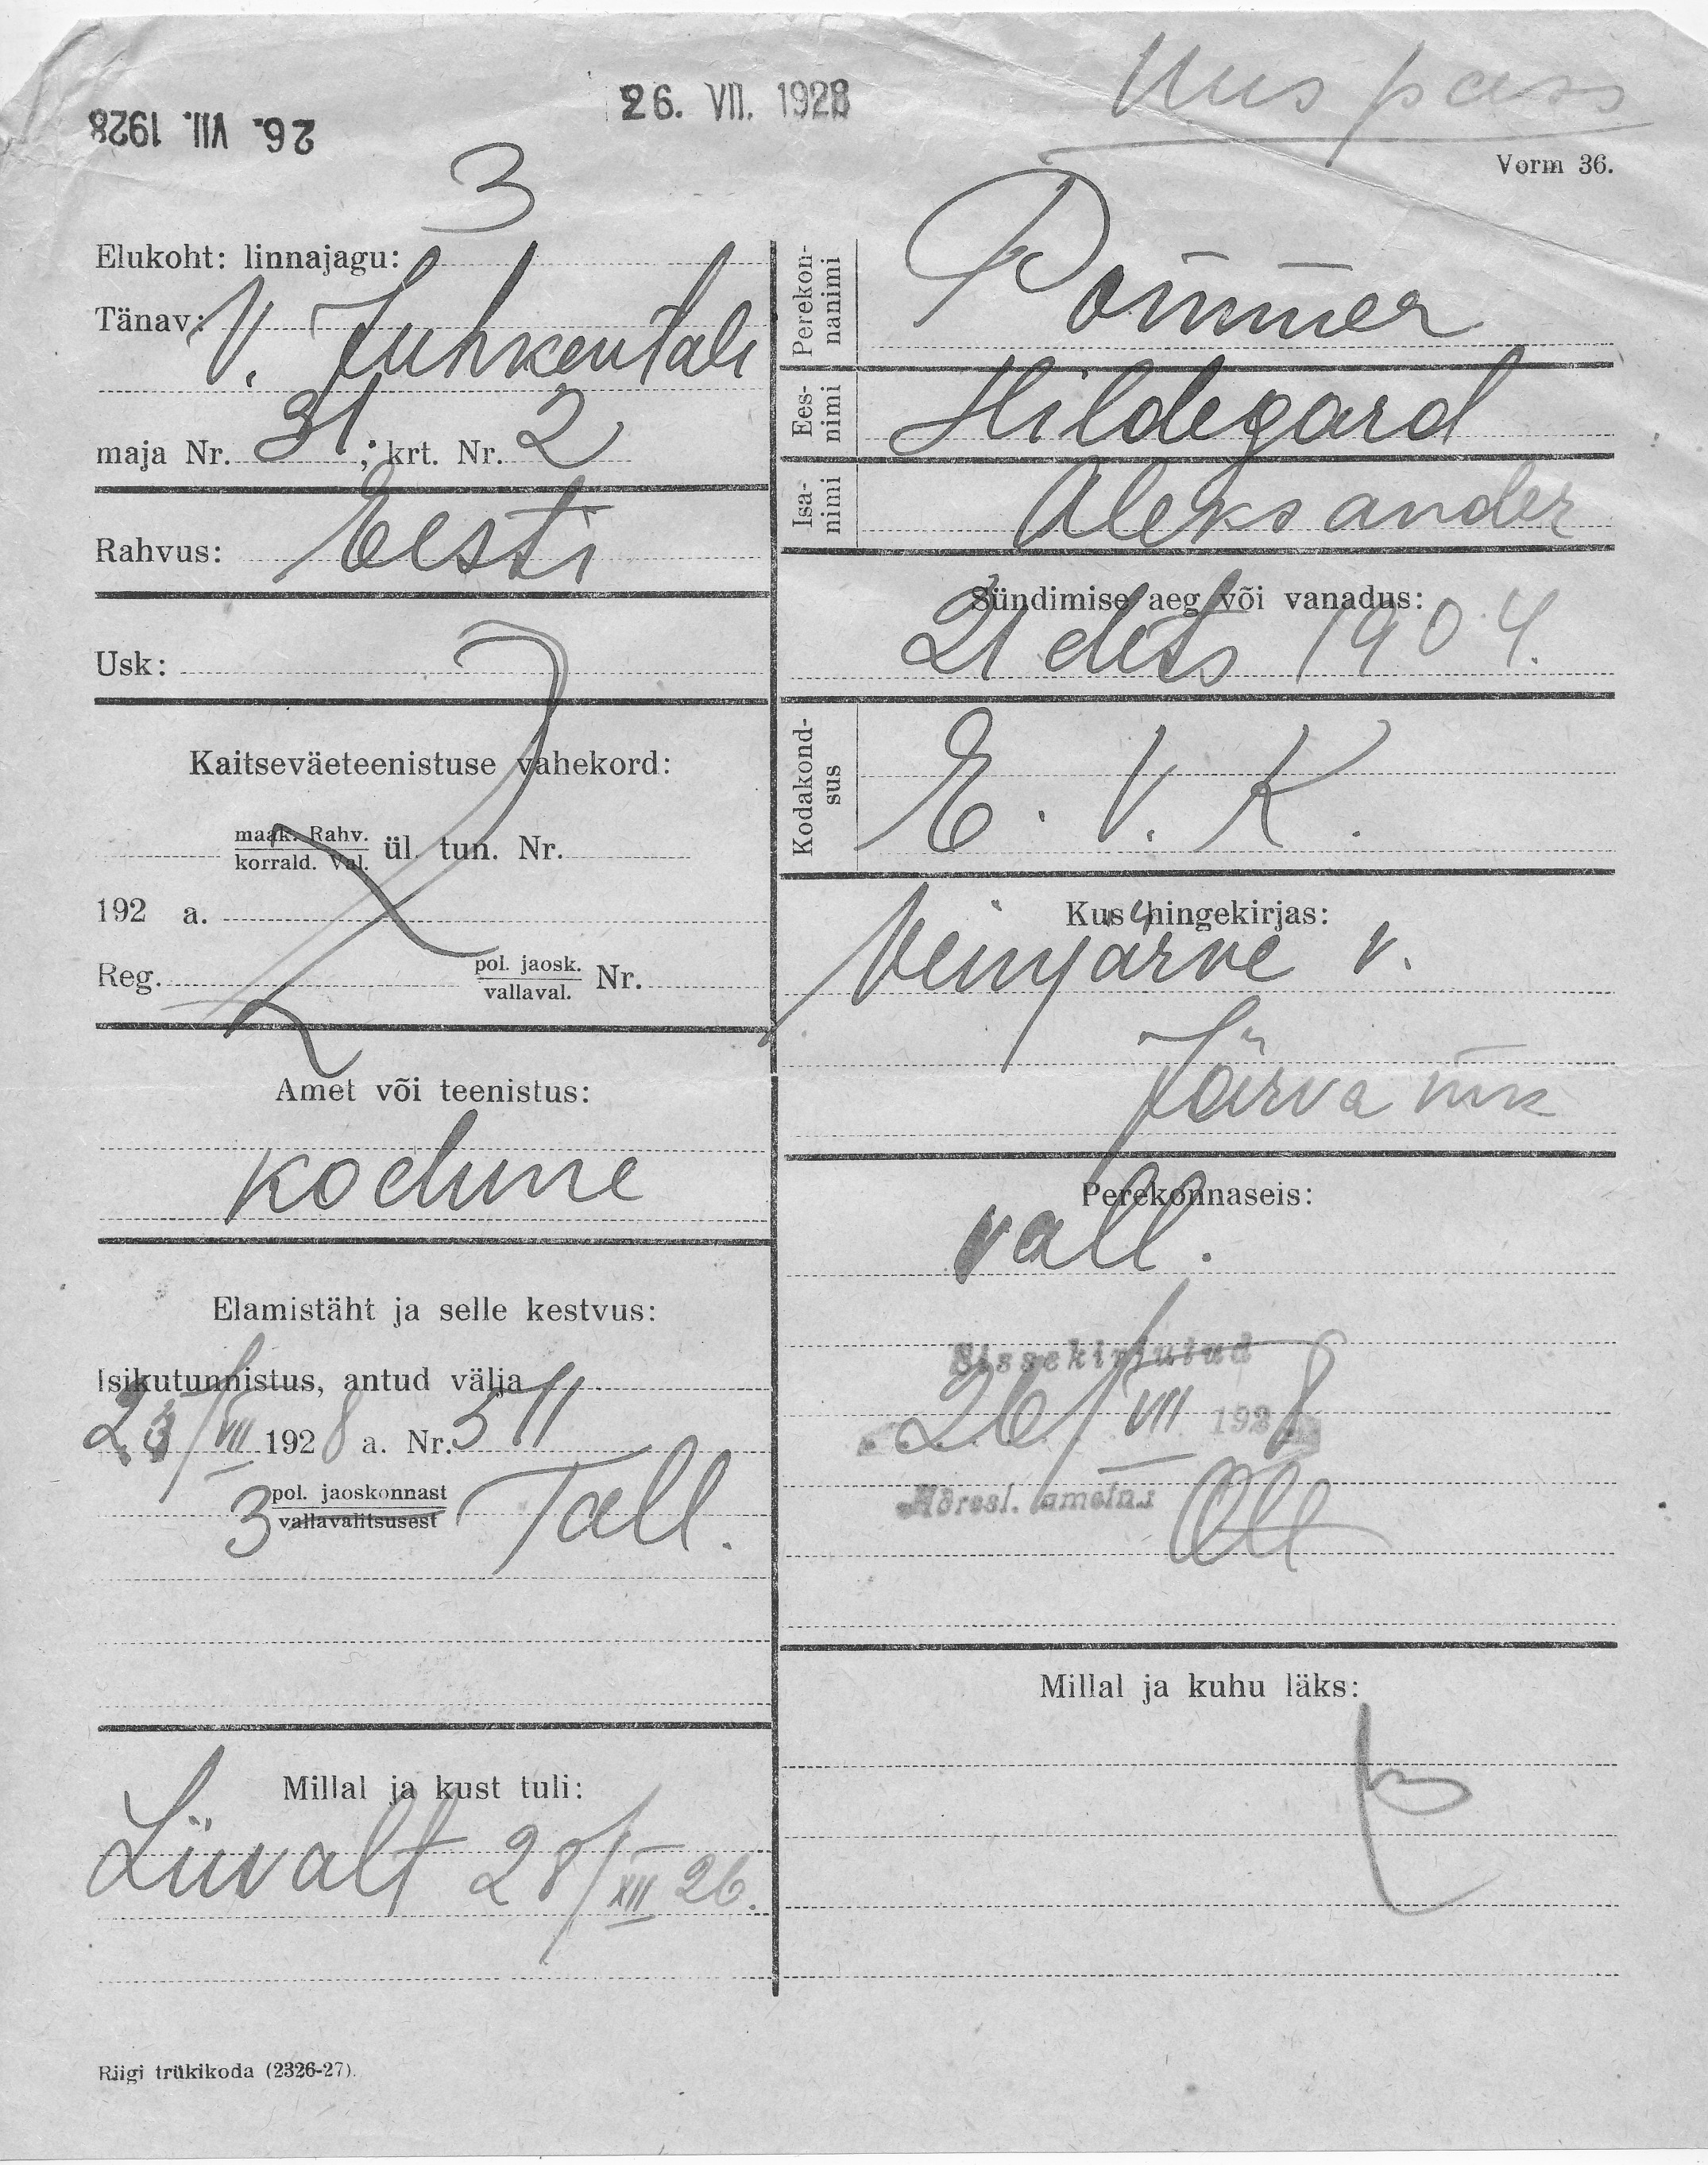 26. VII. 1928
26. VII. 1928
Uus pass
Vorm 36.
Elukoht: linnajagu: 3
Tänav: V. Juhkentali
maja Nr. 31, krt. Nr. 2
Rahvus: Eesti
Usk:
Kaitseväeteenistuse vahekord:
maak. Rahv.
korrald. Val. ül. tun. Nr.
192 a.
Reg. pol. jaosk.
vallaval. Nr.
Amet või teenistus:
kodune
Elamistäht ja selle kestvus:
Isikutunnistus, antud välja
/VII 1928 a. Nr. 511
3 pol. jaoskonnast Tall.
vallavalitsusest
Millal ja kust tuli:
28/XII 26.
Riigi trükikoda (2326-27).
Perekon-
nanimi Pommer
Ees-
nimi Hildegard
Isa-
nimi Aleksander
Sündimise aeg või vanadus:
21 dets 1904.
Kodakond-
sus E. V. K.
Kus hingekirjas:
Veinjärve v.
Järva mk
Perekonnaseis:
vall.
Sissekirjutud
26/VII 1928
Adresl. ametn.
Millal ja kuhu läks: